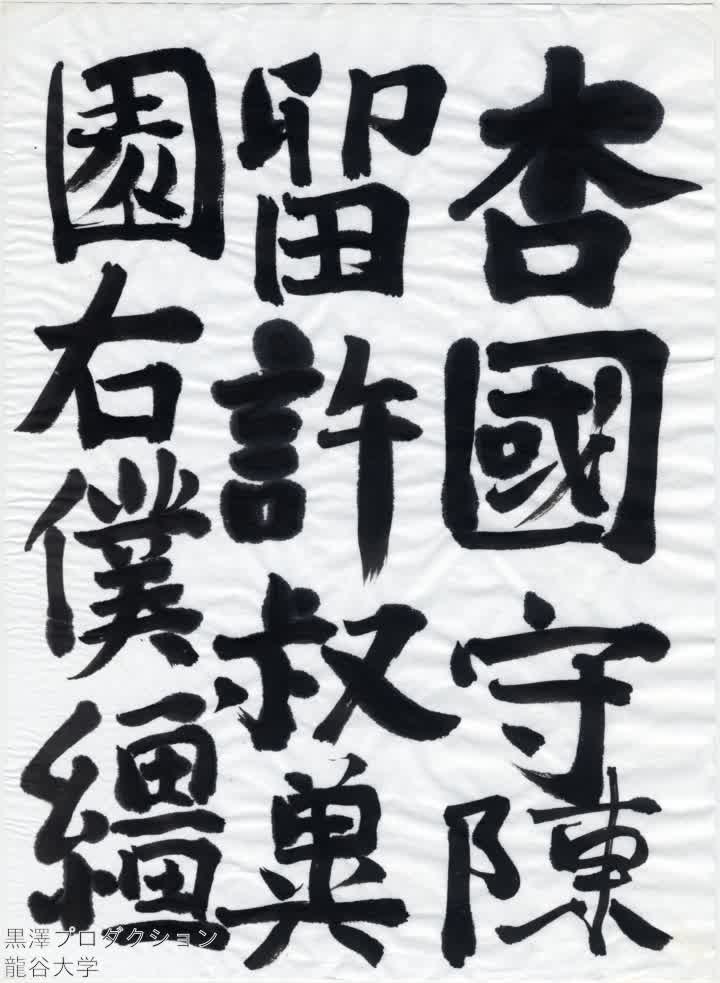 杏國守陳
留許叔
園右僕繮
黒澤プロダクション
龍谷大学